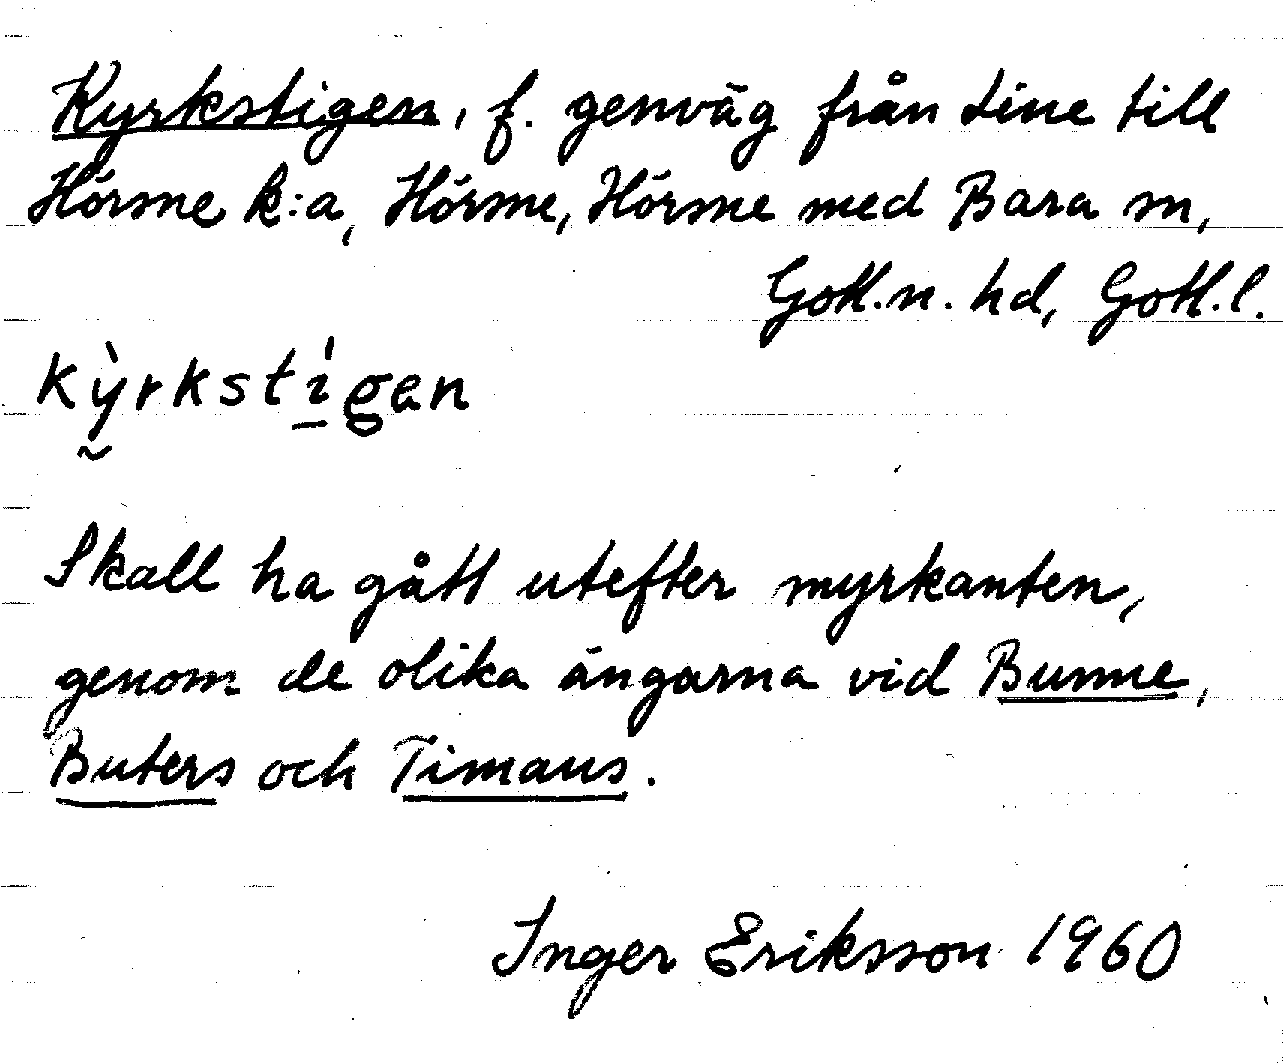 Kyrkstigen, f. genväg från Line till
Hörsne k:a, Hörsne, Hörsne med Bara sn,
Gotl.n. hd, Gotl.l.
kỳrkstígen
Skall ha gått utefter myrkanten,
genom de olika ängarna vid Bunne,
Buters och Timans.
Inger Eriksson 1960